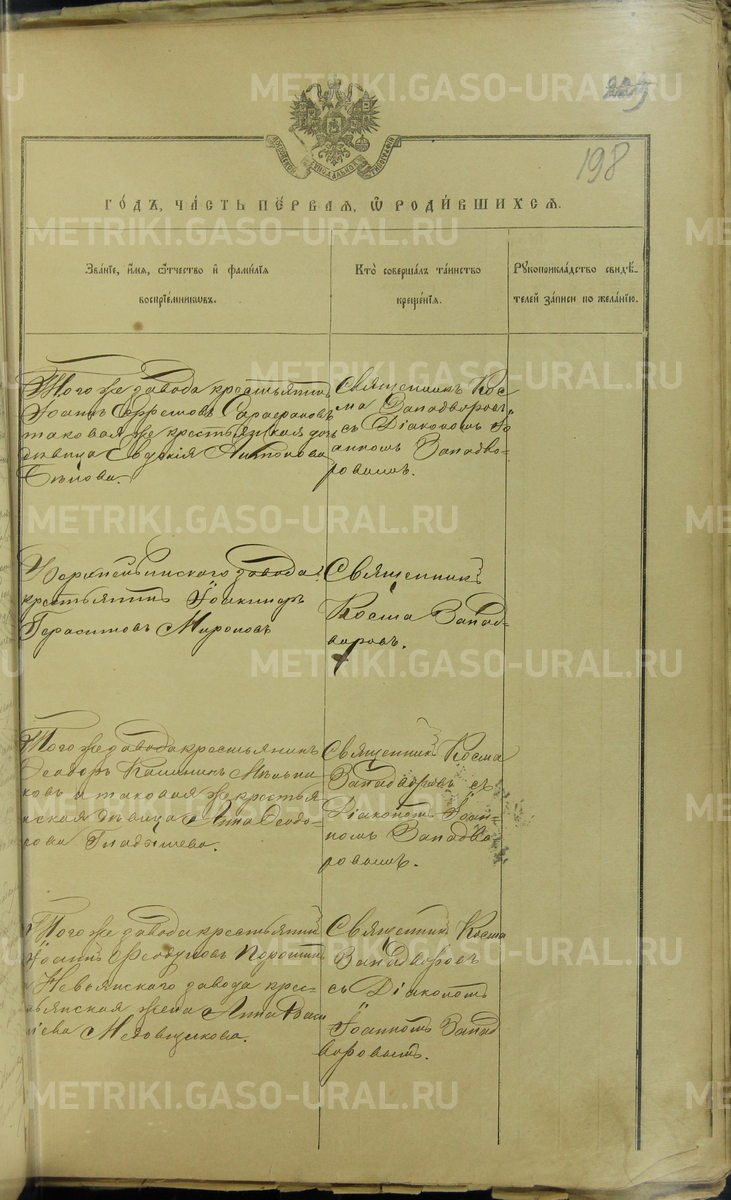 METRIKI.GASO-URAL.RU
198
МОСКОВСКОЙ СУНОДАЛЬНОЙ ТИПОГРАФІИ
ГОДЪ, ЧАСТЬ ПЕРВАЯ, Ѿ РОДИВШИХСЯ.
Званіе, имя, ѿчество и фамилія
воспріемниковъ.
Кто совершалъ таинство
крещенія.
Рукоприкладство свидѣ-
телей записи по желанію.
Того же завода крестьянинъ
Іоаннъ Сарафановъ
таковая же крестьянская дочь
дѣвица Евдокія Антонова
Бѣлова.
Священникъ Кос-
ма Западворовъ
съ Діакономъ Іо-
анномъ Западво-
ровымъ.
завода
крестьянинъ Іоакимъ
Герасимовъ Мироновъ
Священникъ
Косма Запад-
воровъ.
Того же завода крестьянинъ
Ѳеодоръ Мѣльни-
ковъ и таковая же крестья
нская дѣвица Анна Ѳеодо-
рова Гладышева.
Священникъ Косма
Западворовъ съ
Діакономъ Іоан-
номъ Западво
ровымъ.
Того же завода крестьянинъ
Іоаннъ Ѳеодуловъ
и Невьянскаго завода крес-
тьянская жена Анна Васи
льева Мѣдовщикова.
Священникъ Косма
Западворовъ
съ Діакономъ
Іоанномъ Запад
воровымъ.